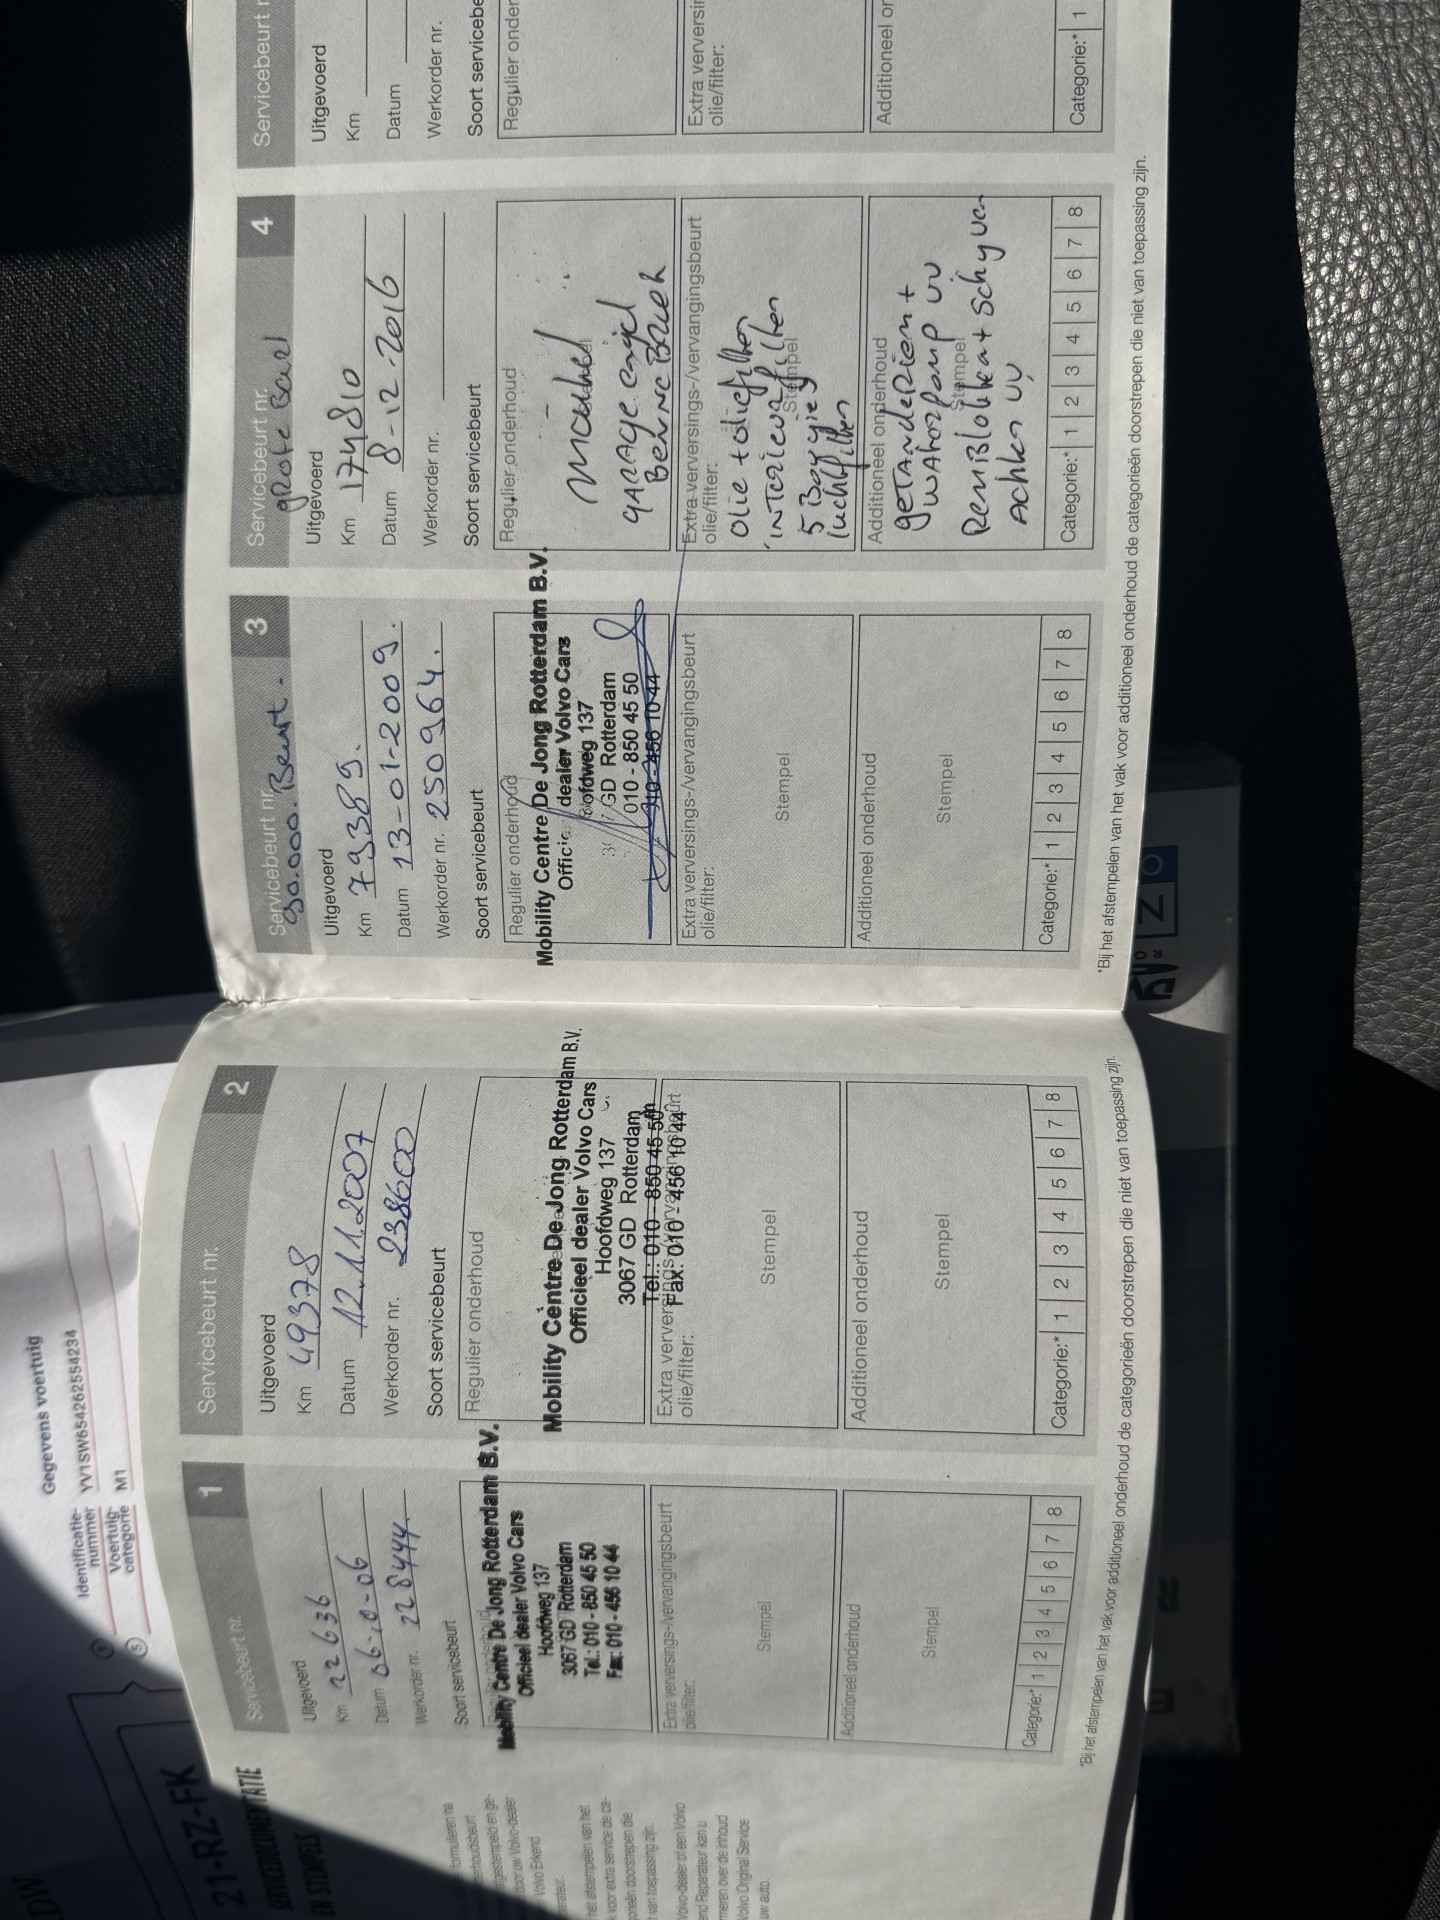 Gegevens voertuig
Identificatie-
nummer YV1SW65426255 4234
Voertuig-
categorie M1
5
21-RZ-FK
SERVICEDOCUMENTATIE
EN STEMPELS
Servicebeurt nr. 1
Uitgevoerd
Km 22636
Datum 06-10-06
Werkorder nr. 228444.
Soort servicebeurt
Mobility Centre De Jong Rotterdam B.V.
Officieel dealer Volvo Cars
Hoofdweg 137
3067 GD Rotterdam
Tel.: 010 - 850 45 50
Fax: 010 - 456 10 44
Extra verversings-/vervangingsbeurt
olie/filter:
Stempel
Additioneel onderhoud
Stempel
Categorie:* 1 2 3 4 5 6 7 8
*Bij het afstempelen van het vak voor additioneel onderhoud de categorieën doorstrepen die niet van toepassing zijn.
Servicebeurt nr. 2
Uitgevoerd
Km 49378
Datum 12.11.2007
Werkorder nr. 238600
Soort servicebeurt
Regulier onderhoud
Mobility Centre De Jong Rotterdam B.V.
Officieel dealer Volvo Cars
Hoofdweg 137
3067 GD Rotterdam
Tel.: 010 - 850 45 50
Fax: 010 - 456 10 44
Extra verversings-/vervangingsbeurt
olie/filter:
Stempel
Additioneel onderhoud
Stempel
Categorie:* 1 2 3 4 5 6 7 8
Servicebeurt nr. 3
90.000. Beurt.
Uitgevoerd
Km 79389.
Datum 13-01-2009.
Werkorder nr. 250964.
Soort servicebeurt
Regulier onderhoud
Mobility Centre De Jong Rotterdam B.V.
dealer Volvo Cars
137
GD Rotterdam
010 - 850 45 50
010 - 456 10 44
Extra verversings-/vervangingsbeurt
olie/filter:
Stempel
Additioneel onderhoud
Stempel
Categorie:* 1 2 3 4 5 6 7 8
*Bij het afstempelen van het vak voor additioneel onderhoud de categorieën doorstrepen die niet van toepassing zijn.
Servicebeurt nr. 4
grote
Uitgevoerd
Km 174810
Datum 8-12-2016
Werkorder nr.
Soort servicebeurt
Regulier onderhoud
garage
Extra verversings-/vervangingsbeurt
olie/filter:
Olie + oliefilter
interieur filter
Stempel
luchtfilter
Additioneel onderhoud
getanderiem +
waterpomp vv
Stempel
Remblokken + Schyven
Achter vv
Categorie:* 1 2 3 4 5 6 7 8
Servicebeurt
Uitgevoerd
Km
Datum
Werkorder nr.
Regulier
Extra
olie/filter:
Additioneel
Categorie:* 1